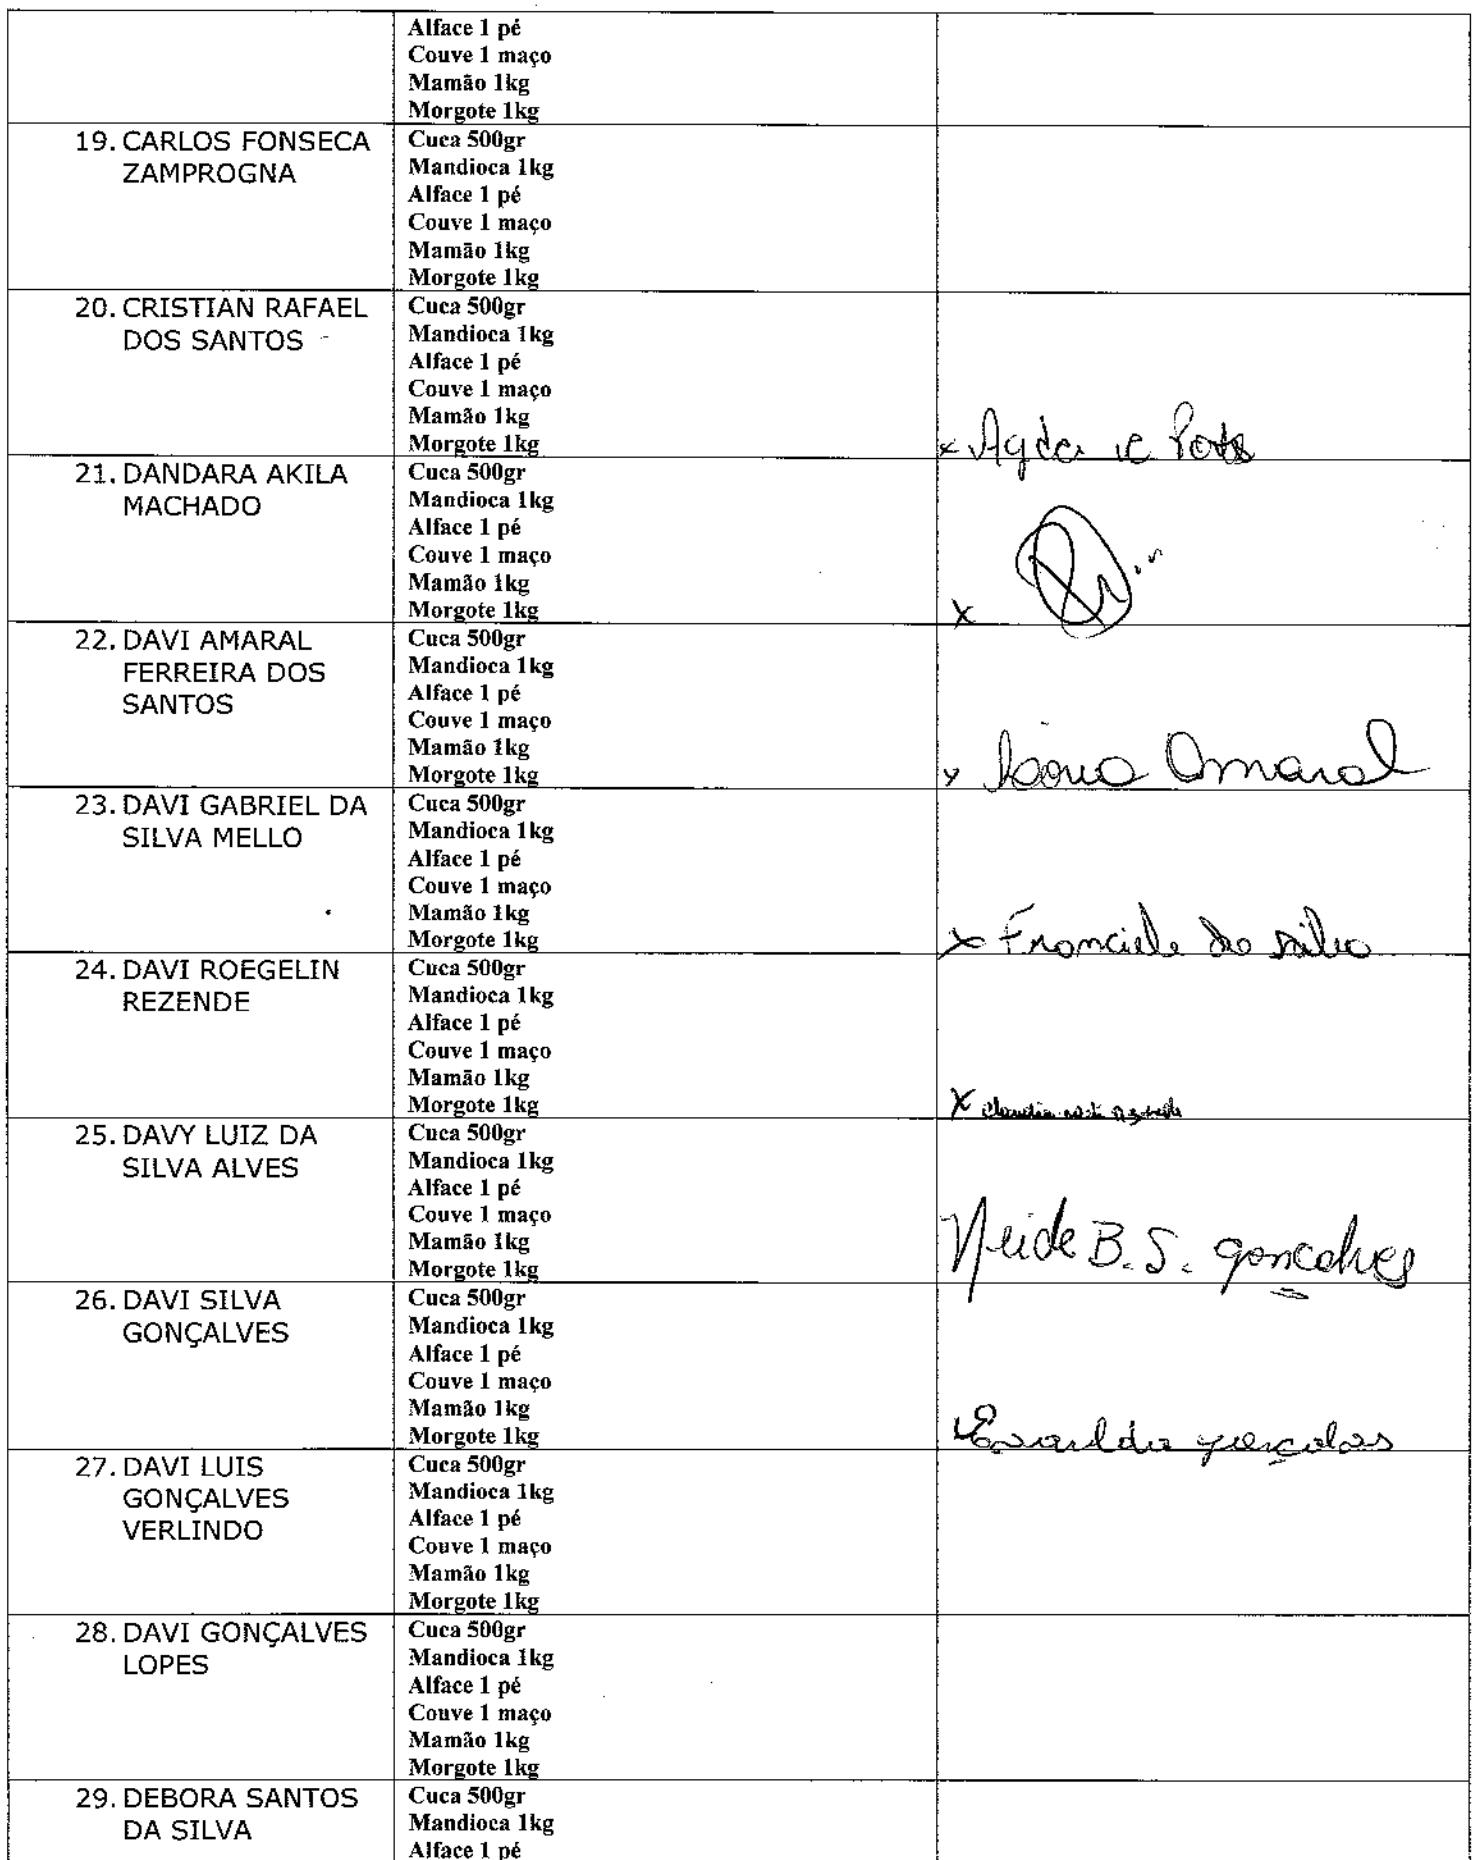 Alface 1 pé
Couve 1 maço
Mamão 1kg
Morgote 1kg
19. CARLOS FONSECA
ZAMPROGNA
Cuca 500gr
Mandioca 1kg
Alface 1 pé
Couve 1 maço
Mamão 1kg
Morgote 1kg
20. CRISTIAN RAFAEL
DOS SANTOS
Cuca 500gr
Mandioca 1kg
Alface 1 pé
Couve 1 maço
Mamão 1kg
Morgote 1kg
x
21. DANDARA AKILA
MACHADO
Cuca 500gr
Mandioca 1kg
Alface 1 pé
Couve 1 maço
Mamão 1kg
Morgote 1kg
x
22. DAVI AMARAL
FERREIRA DOS
SANTOS
Cuca 500gr
Mandioca 1kg
Alface 1 pé
Couve 1 maço
Mamão 1kg
Morgote 1kg
x Amaral
23. DAVI GABRIEL DA
SILVA MELLO
Cuca 500gr
Mandioca 1kg
Alface 1 pé
Couve 1 maço
Mamão 1kg
Morgote 1kg
x Franciele da Silva
24. DAVI ROEGELIN
REZENDE
Cuca 500gr
Mandioca 1kg
Alface 1 pé
Couve 1 maço
Mamão 1kg
Morgote 1kg
x
25. DAVY LUIZ DA
SILVA ALVES
Cuca 500gr
Mandioca 1kg
Alface 1 pé
Couve 1 maço
Mamão 1kg
Morgote 1kg
Neide B. S. Gonçalves
26. DAVI SILVA
GONÇALVES
Cuca 500gr
Mandioca 1kg
Alface 1 pé
Couve 1 maço
Mamão 1kg
Morgote 1kg
27. DAVI LUIS
GONÇALVES
VERLINDO
Cuca 500gr
Mandioca 1kg
Alface 1 pé
Couve 1 maço
Mamão 1kg
Morgote 1kg
28. DAVI GONÇALVES
LOPES
Cuca 500gr
Mandioca 1kg
Alface 1 pé
Couve 1 maço
Mamão 1kg
Morgote 1kg
29. DEBORA SANTOS
DA SILVA
Cuca 500gr
Mandioca 1kg
Alface 1 pé